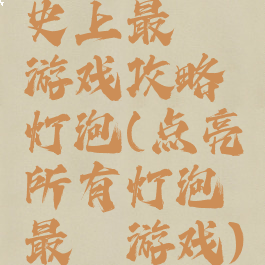 史上最
游戏攻略
灯泡(点亮
所有灯泡
最 游戏)